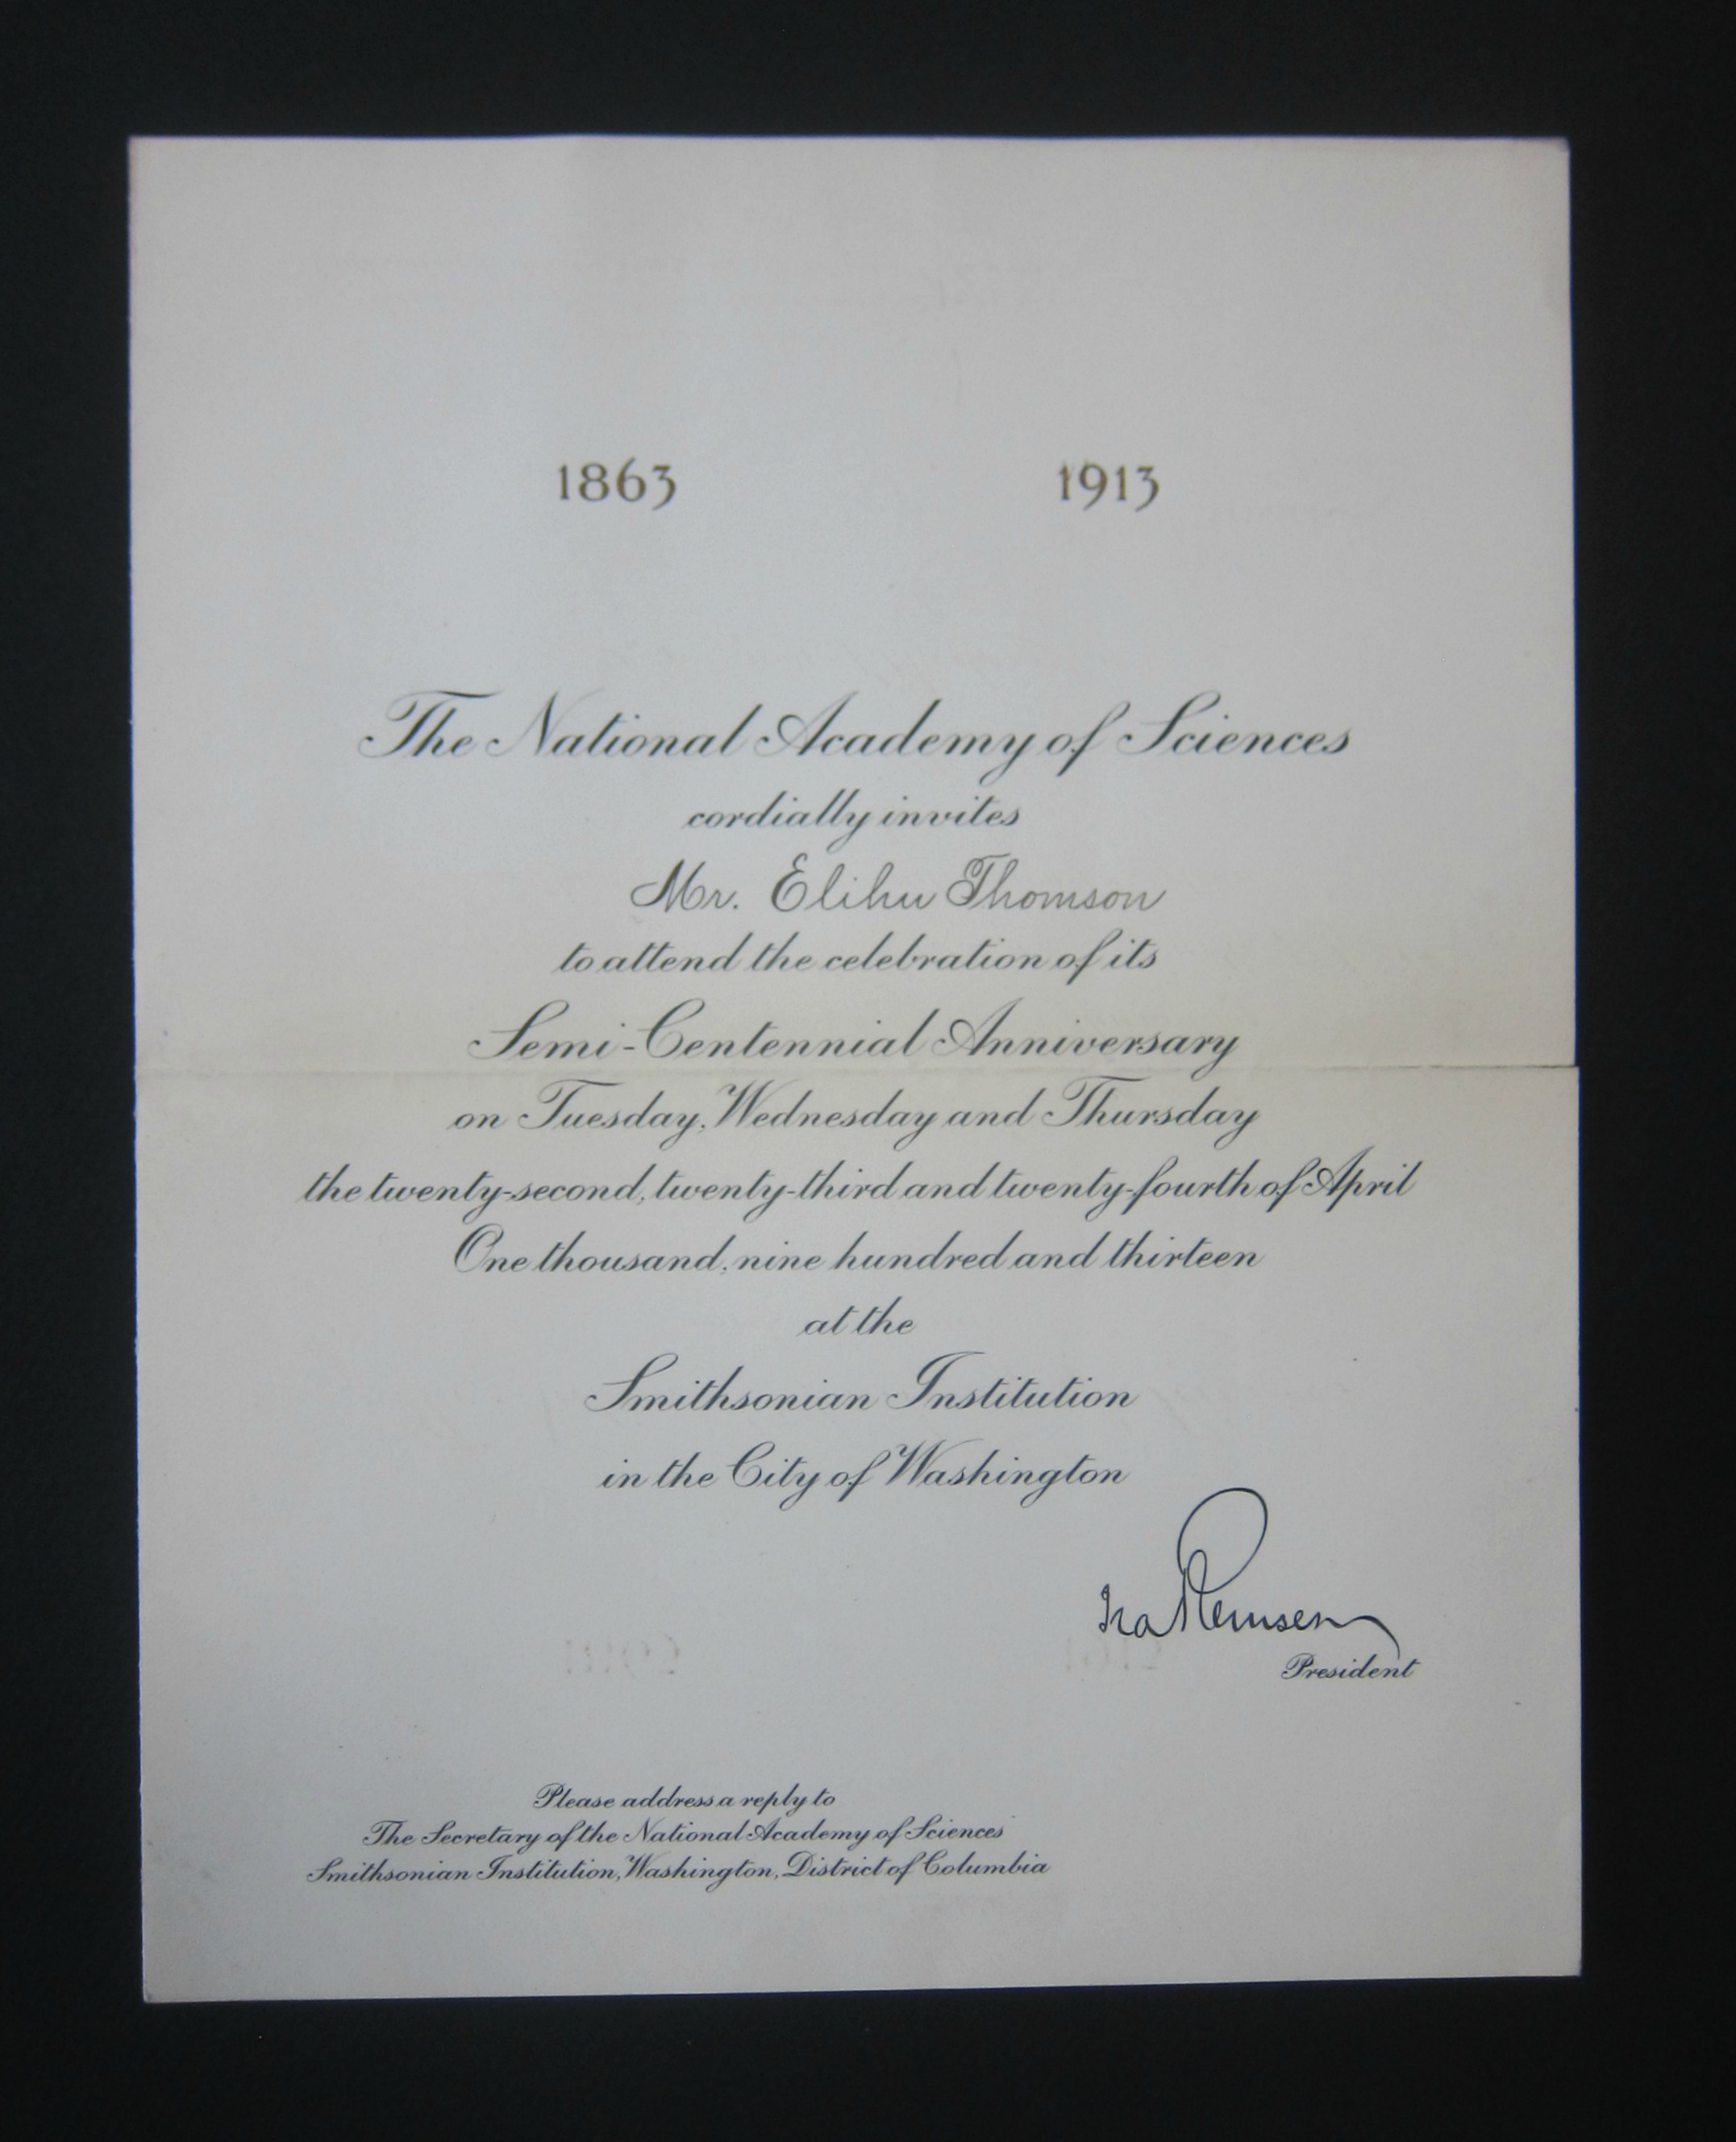 1863 1913
The National Academy of Sciences
cordially invites
Mr. Elihu Thomson
to attend the celebration of its
Semi-Centennial Anniversary
on Tuesday, Wednesday and Thursday
the twenty-second, twenty-third and twenty-fourth of April
One thousand, nine hundred and thirteen
at the
Smithsonian Institution
in the City of Washington
Ira Remsen
President
Please address a reply to
The Secretary of the National Academy of Sciences
Smithsonian Institution, Washington, District of Columbia